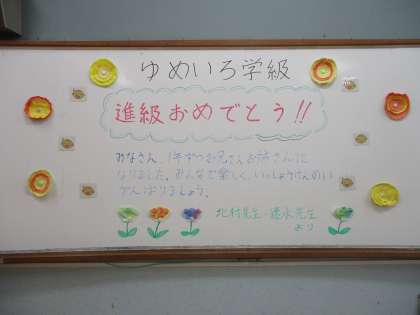 ゆめいろ学級
進級おめでとう!!
みなさん、1年ずつお兄さんお姉さんに
なりました。みんなで楽しく、いっしょうけんめい
がんばりましょう。
北村先生・速水先生
より